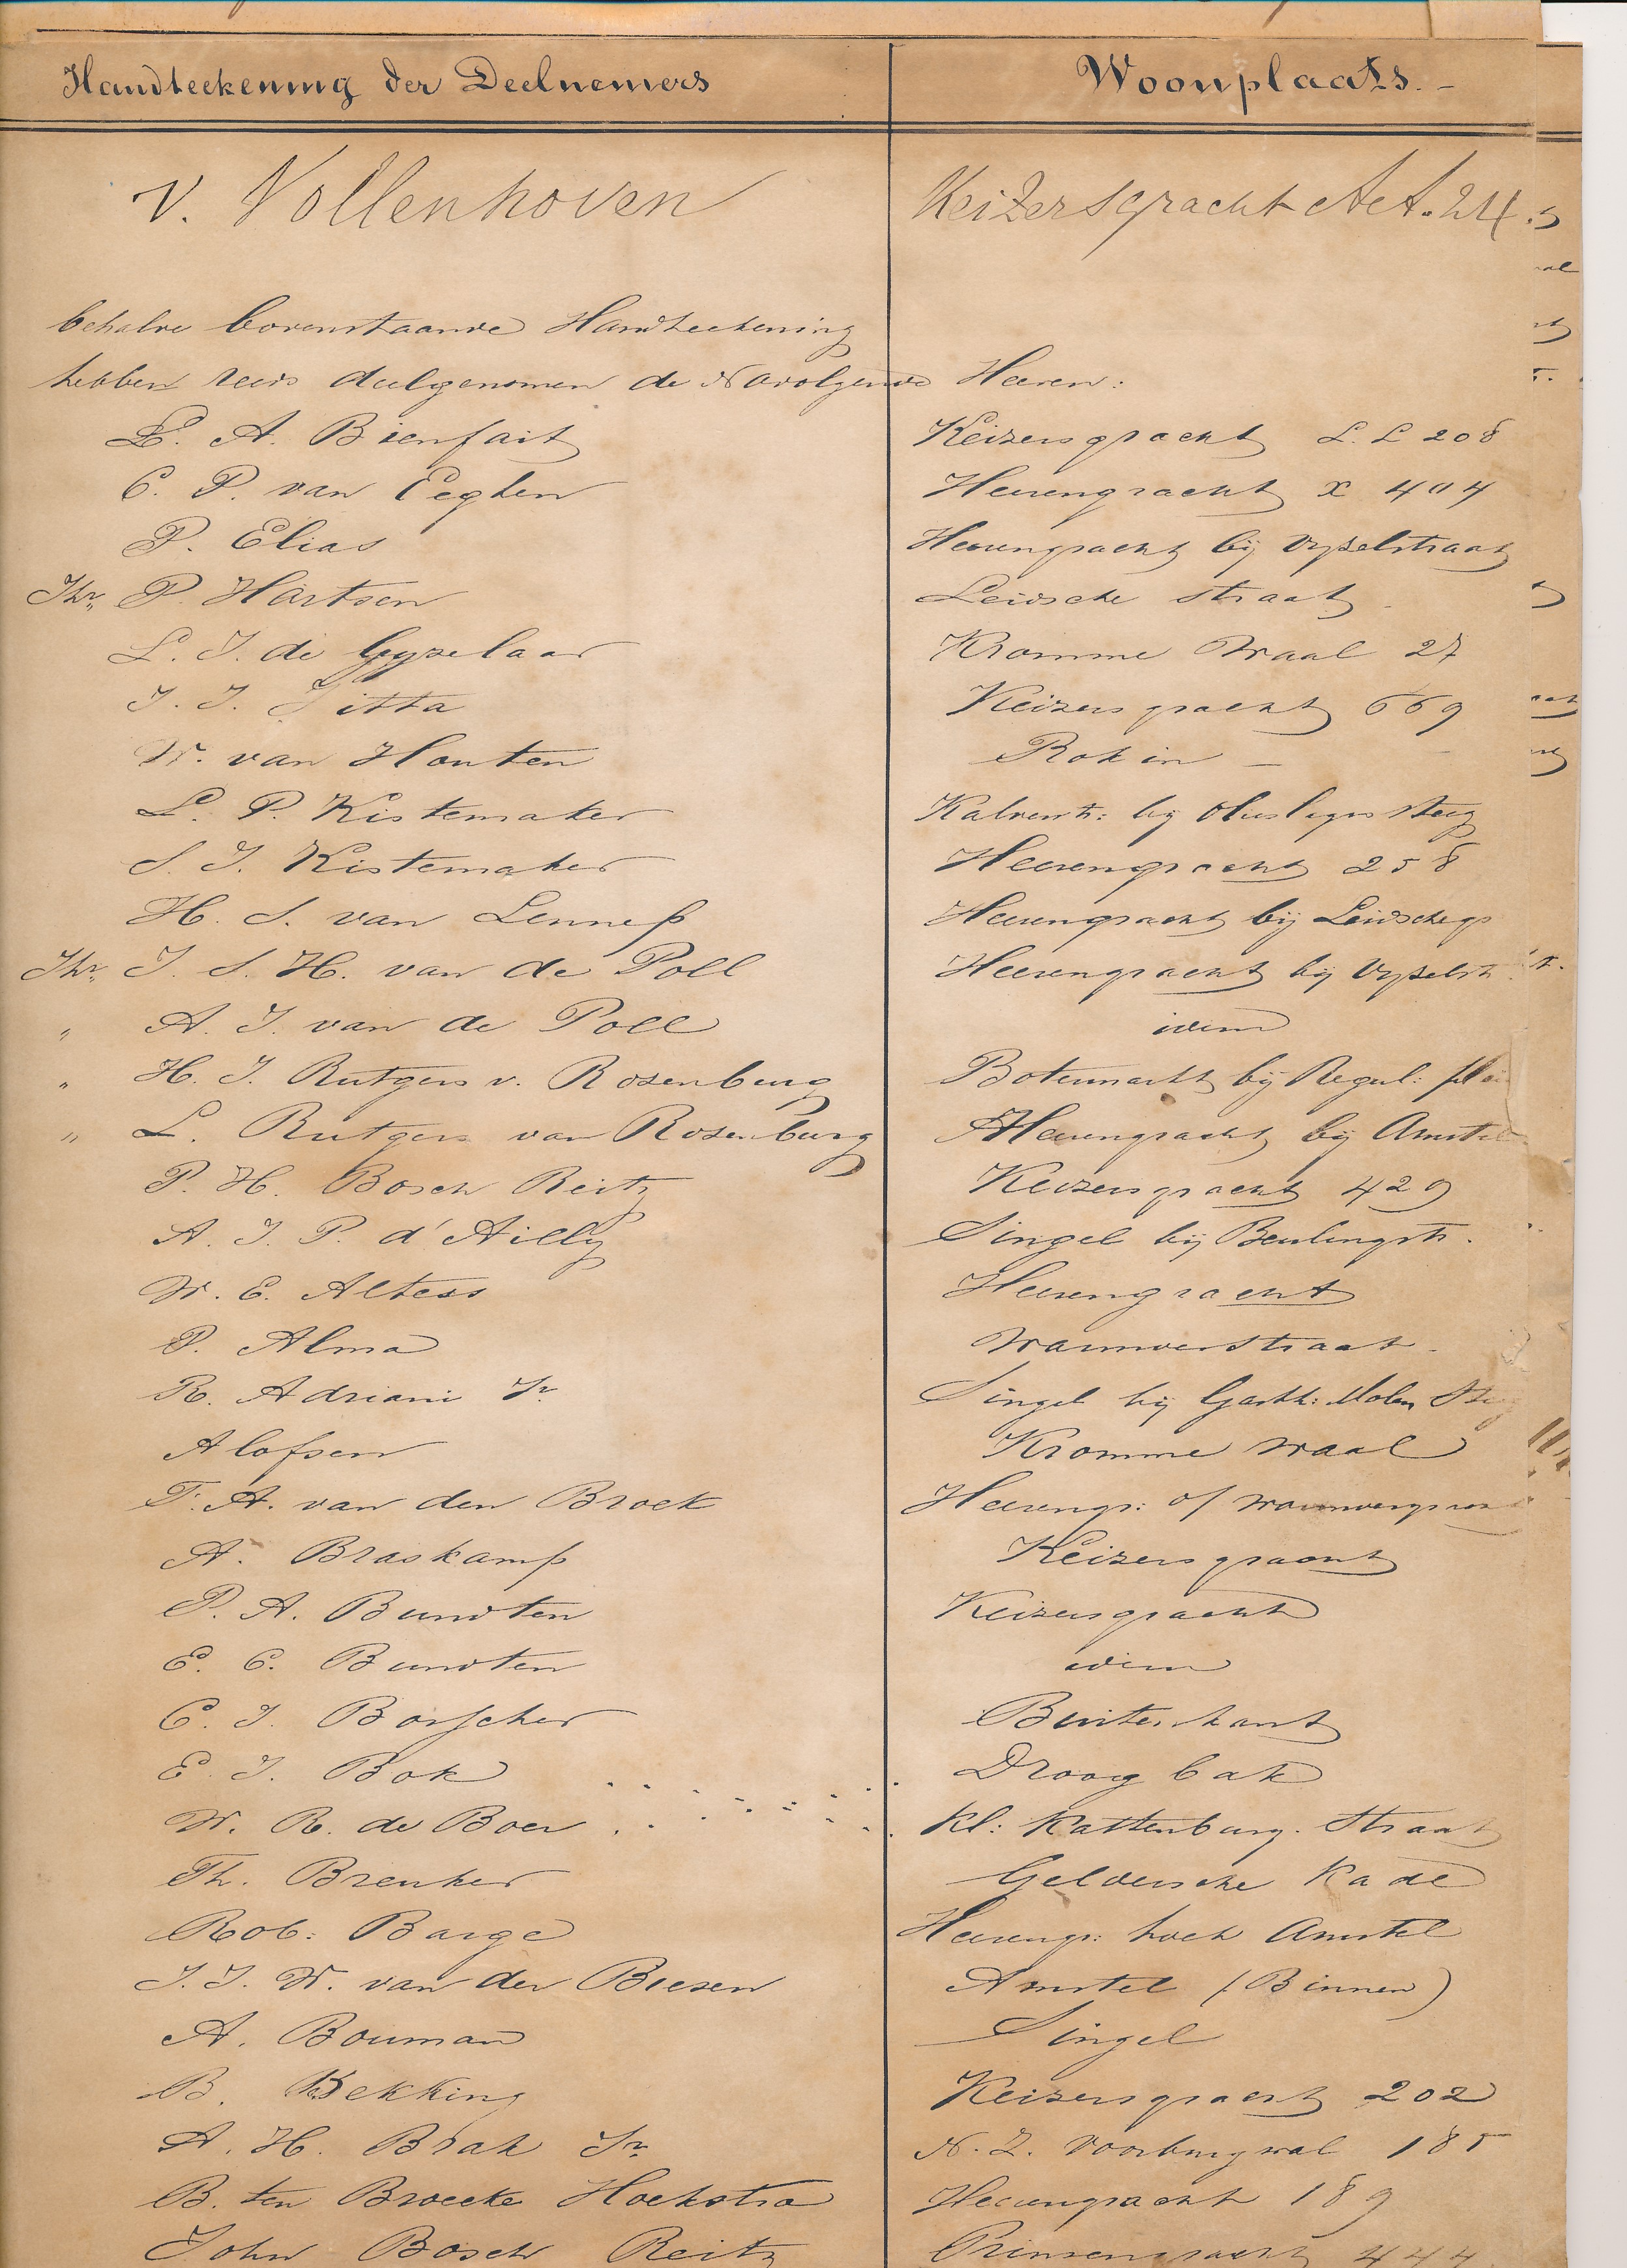 Handteekening der Deelnemers Woonplaats. -
v. Vollenhoven Keizersgracht AA. 24.
behalve bovenstaande Handteekening
hebben reeds deelgenomen de Navolgende Heeren:
L. A. Bienfait Keizersgracht L. L 208
C. P. van Eeghen Heerengracht X 404
P. Elias Heerengracht bij Vyzelstraat
Jhr. P. Hartsen Leidsche straat
L. J. de Gyzelaar Kromme Waal 27
J. J. Jitta Keizersgracht 669
W. van Houten Rokin -
L. P. Kistemaker Kalverstr: bij Olieslagers steeg
S. J. Kistemaker Heerengracht 258
H. S. van Lennep Heerengracht bij Leidschegr
Jhr. J. S. H. van de Poll Heerengracht bij Vyzelstr.
" A. J. van de Poll idem
" H. J. Rutgers v. Rosenburg Botermarkt bij Regul: plein
" L. Rutgers van Rosenburg Heerengracht bij Amstel
P. H. Bosch Reitz Keizersgracht 429
A. J. P. d'Ailly Singel bij Beulingstr.
W. E. Altess Heerengracht
P. Alma Warmoesstraat.
R. Adriani Jr. Singel bij Gasth: Molen Steeg
Alofsen Kromme Waal
T. A. van den Broek Heerengr: of
A. Braskamp Keizersgracht
P. A. Bundten Keizersgracht
E. C. Bundten idem
C. J. Borscher Buitenkant
E. J. Bok Droogbak
W. R. de Boer Kl: Kattenburg. Straat
Th. Breuker Geldersche Kade
Rob: Barge Heerengr: hoek Amstel
J. J. W. van der Biesen Amstel (Binnen)
A. Bouman Singel
B. Bekking Keizersgracht 202
A. H. Brak Jr. N. Z. Voorburgwal 185
B. ten Broecke Hoekstra Heerengracht 189
John Bosch Reitz Prinsengracht 444